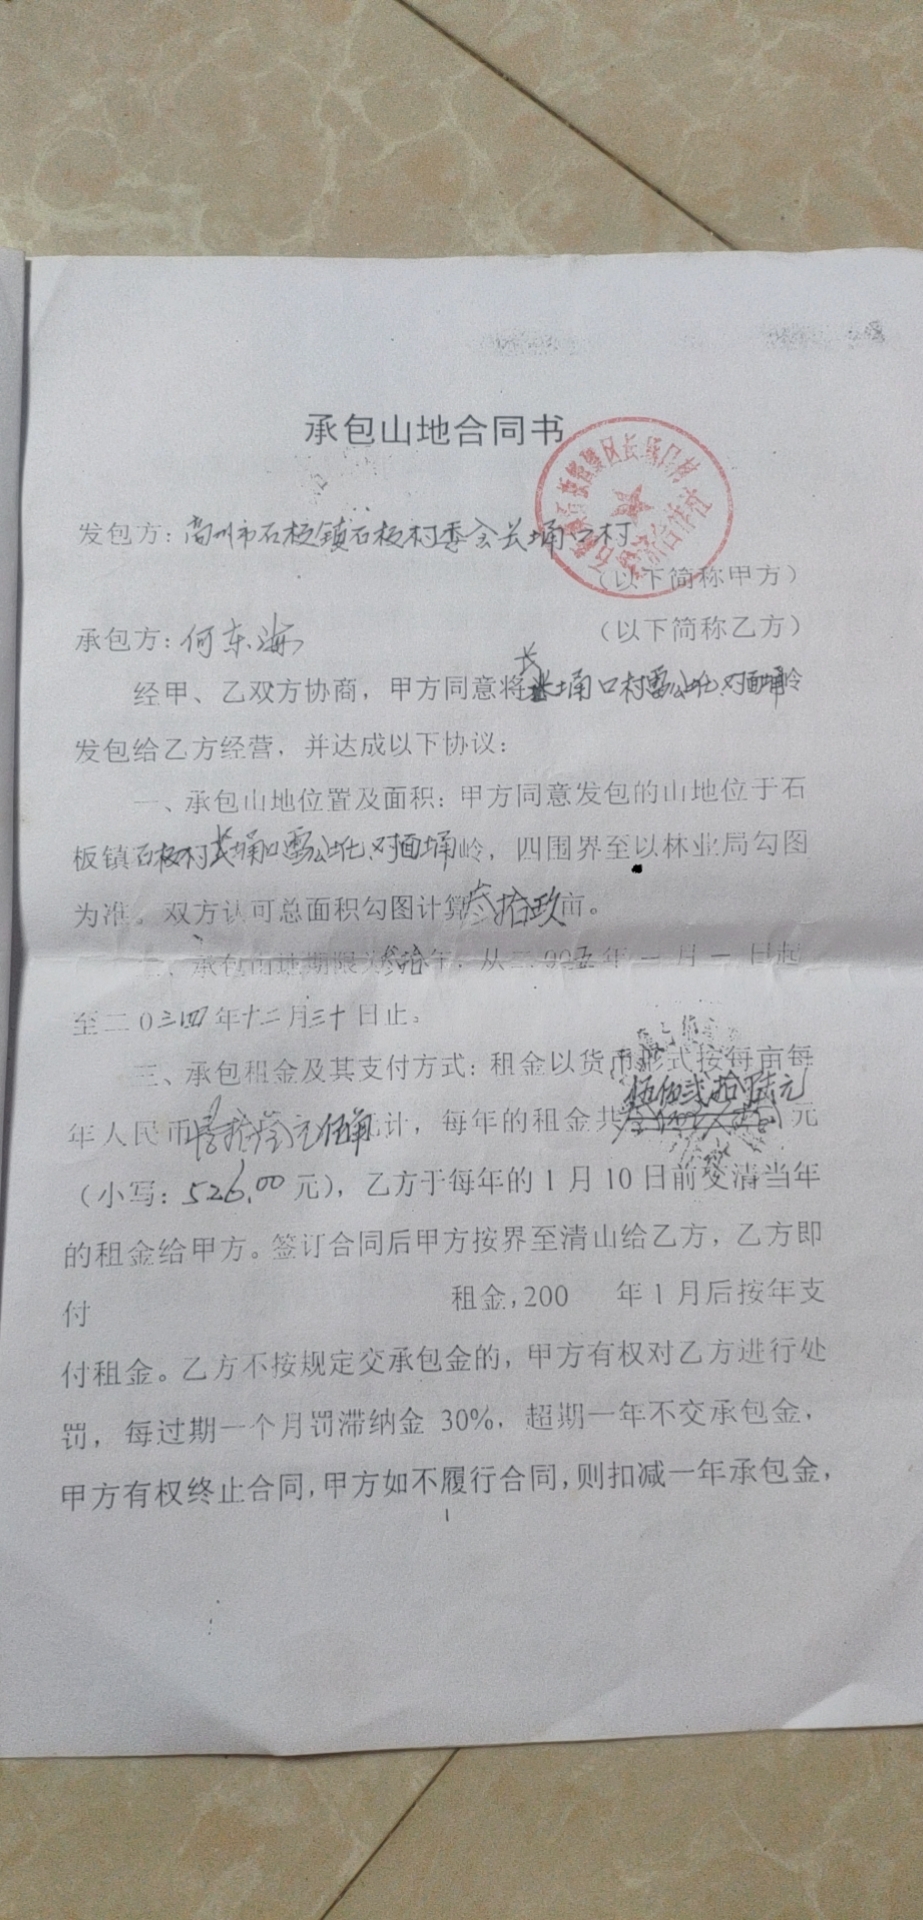 承包山地合同书
发包方：高州市石板镇石板村委会长埇口村
（以下简称甲方）
承包方：何东海
（以下简称乙方）
经甲、乙双方协商，甲方同意将长埇口村雷公坉对面埇岭
发包给乙方经营，并达成以下协议：
一、承包山地位置及面积：甲方同意发包的山地位于石
板镇石板村长埇口雷公坉对面埇岭，四围界至以林业局勾图
为准。双方认可总面积勾图计算叁拾玖亩。
二、承包山地期限为叁拾年，从二00五年一月一日起
至二0三四年十二月三十日止。
三、承包租金及其支付方式：租金以货币形式按每亩每
年人民币壹拾叁元伍角计，每年的租金共伍佰贰拾陆元元
（小写：526.00元），乙方于每年的1月10日前交清当年
的租金给甲方。签订合同后甲方按界至清山给乙方，乙方即
付 租金，200 年1月后按年支
付租金。乙方不按规定交承包金的，甲方有权对乙方进行处
罚，每过期一个月罚滞纳金30%，超期一年不交承包金，
甲方有权终止合同，甲方如不履行合同，则扣减一年承包金，
1